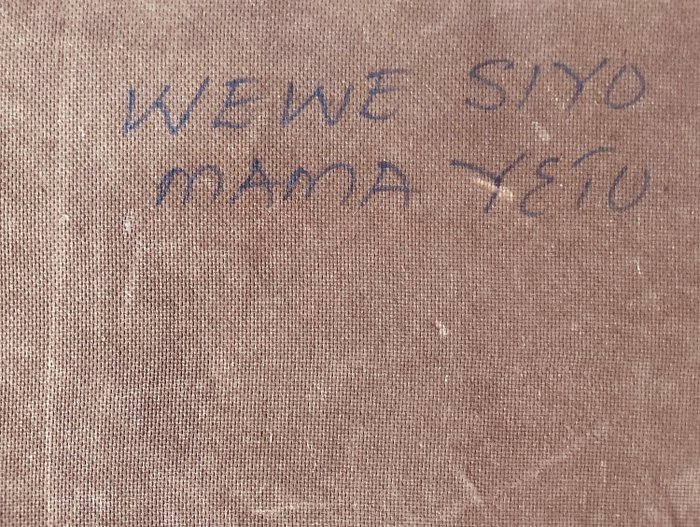 WEWE SIYO
MAMA YETU